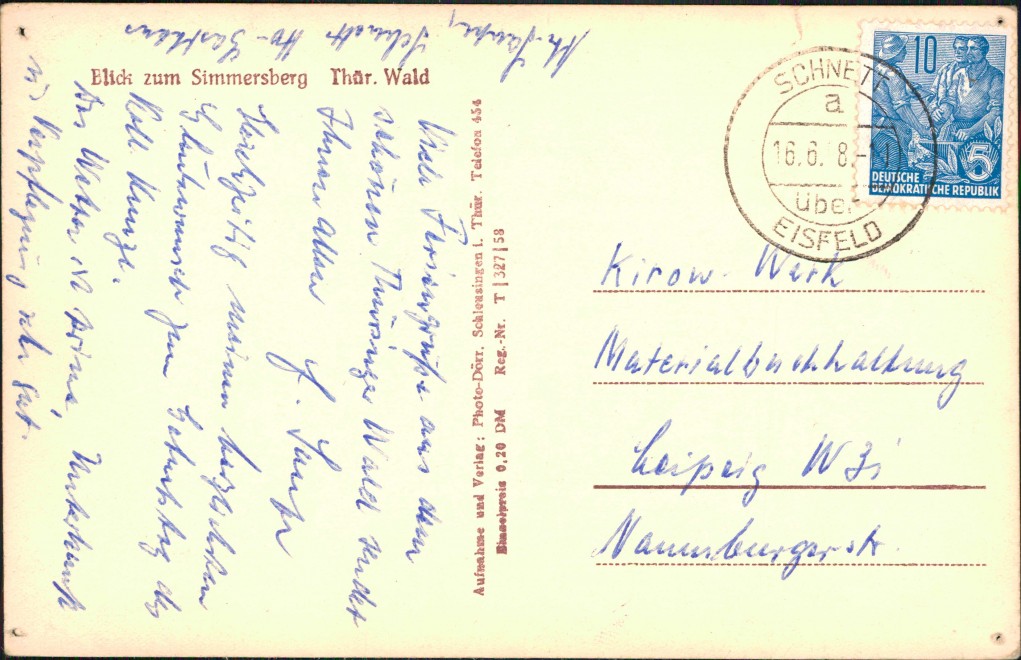 Blick zum Simmersberg Thür. Wald
Viele Feriengrüße aus dem
schönen Thüringer Wald sendet
Ihnen allen
Herzlichen
Glückwunsch zum Geburtstag des
Koll. Kunze.
Das Wetter ist prima, Unterkunft
und Verpflegung sehr gut.
Schnett
Aufnahme und Verlag: Photo-Dörr, Schleusingen i. Thür. Telefon 454
Einzelpreis 0,20 DM Reg.-Nr. T | 327 | 58
SCHNETT
a
16.6.
über
EISFELD
10
5
DEUTSCHE
DEMOKRATISCHE REPUBLIK
Kirow-Werk
Materialbuchhaltung
Leipzig W31
Naumburgerstr.